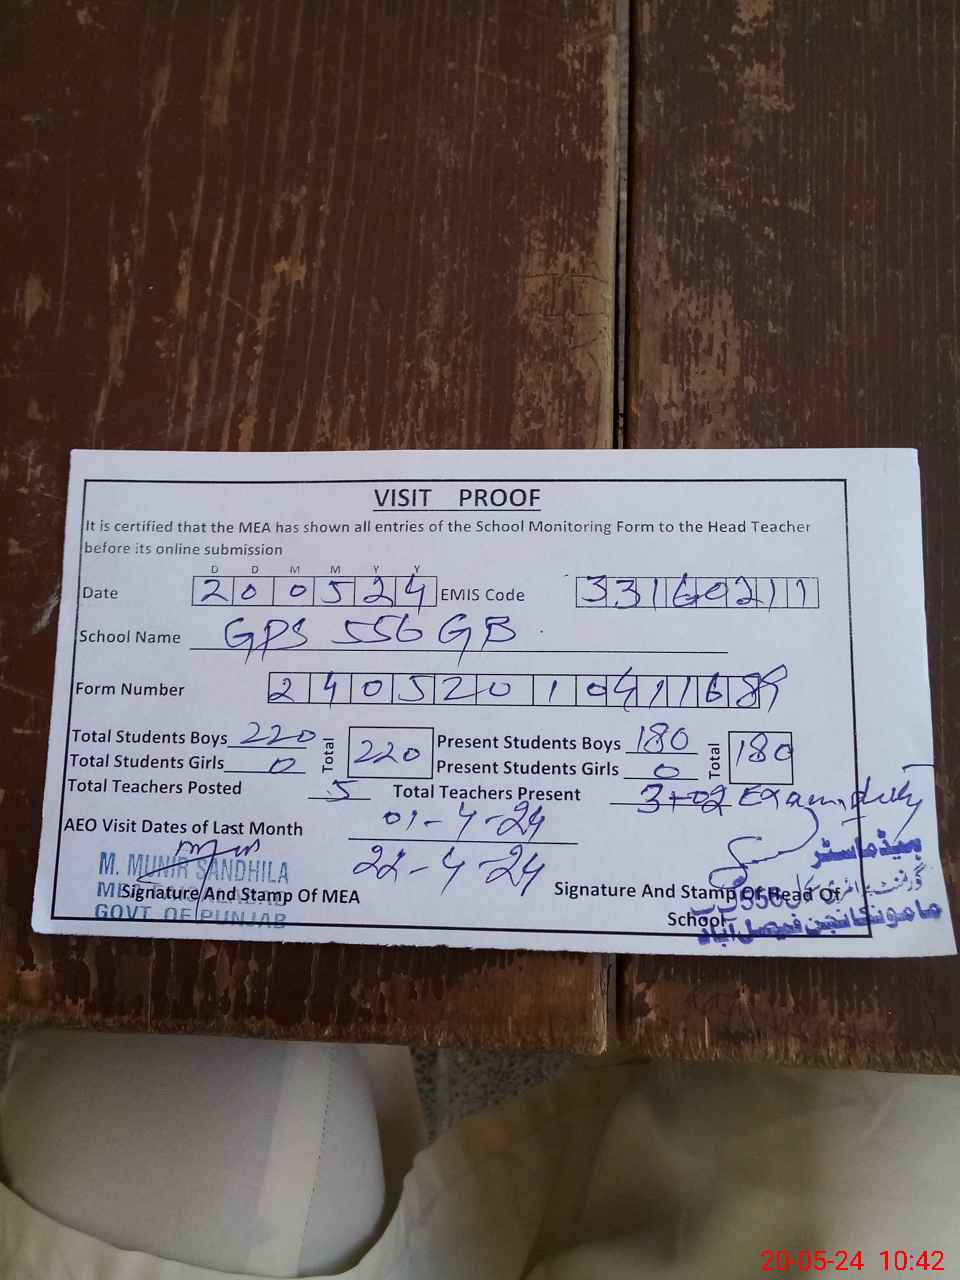 VISIT PROOF
It is certified that the MEA has shown all entries of the School Monitoring Form to the Head Teacher
before its online submission
D D M M Y Y
Date 200524 EMIS Code 33160211
School Name GPS 556 GB
Form Number 24052010411689
Total Students Boys 220 Total 220 Present Students Boys 180 Total 180
Total Students Girls 0 Present Students Girls 0
Total Teachers Posted 5 Total Teachers Present 3+02 Exam duty
AEO Visit Dates of Last Month 01-4-24
22-4-24
M. MUNIR SANDHILA
Signature And Stamp Of MEA
GOVT. OF PUNJAB
Signature And Stamp Of Head Of
School
ہیڈ ماسٹر
گورنمنٹ پرائمری
ماموں کانجن فیصل آباد
20-05-24 10:42